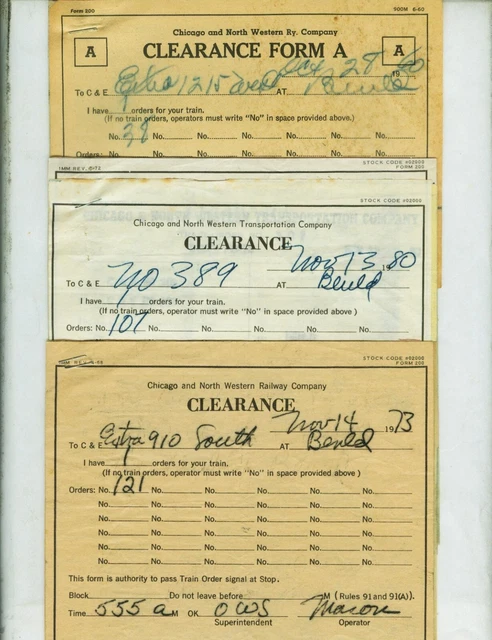 Form 200 500M 6-60
Chicago and North Western Ry. Company
A CLEARANCE FORM A A
Oct 28 1960
To C & E Extra 1215 West AT Benld
I have orders for your train.
(If no train orders, operators must write "No" in space provided above.)
No. 38 No. No. No. No. No.
Orders: No. No. No. No. No. No.
STOCK CODE #02000
FORM 200
STOCK CODE #02000
FORM 200
Chicago and North Western Transportation Company
CLEARANCE
Nov 13 1980
To C & E No 389 AT Benld
I have orders for your train.
(If no train orders, operator must write "No" in space provided above)
Orders: No. 107 No. No. No. No. No.
STOCK CODE #02000
FORM 200
Chicago and North Western Railway Company
CLEARANCE
Nov 14 1973
To C & E Extra 910 South AT Benld
I have orders for your train.
(If no train orders, operator must write "No" in space provided above)
Orders: No. 121 No. No. No. No. No.
No. No. No. No. No. No.
No. No. No. No. No. No.
No. No. No. No. No. No.
No. No. No. No. No. No.
No. No. No. No. No. No.
This form is authority to pass Train Order signal at Stop.
Block Do not leave before M (Rules 91 and 91(A).)
Time 555 a M OK OWS Macon
Superintendent Operator